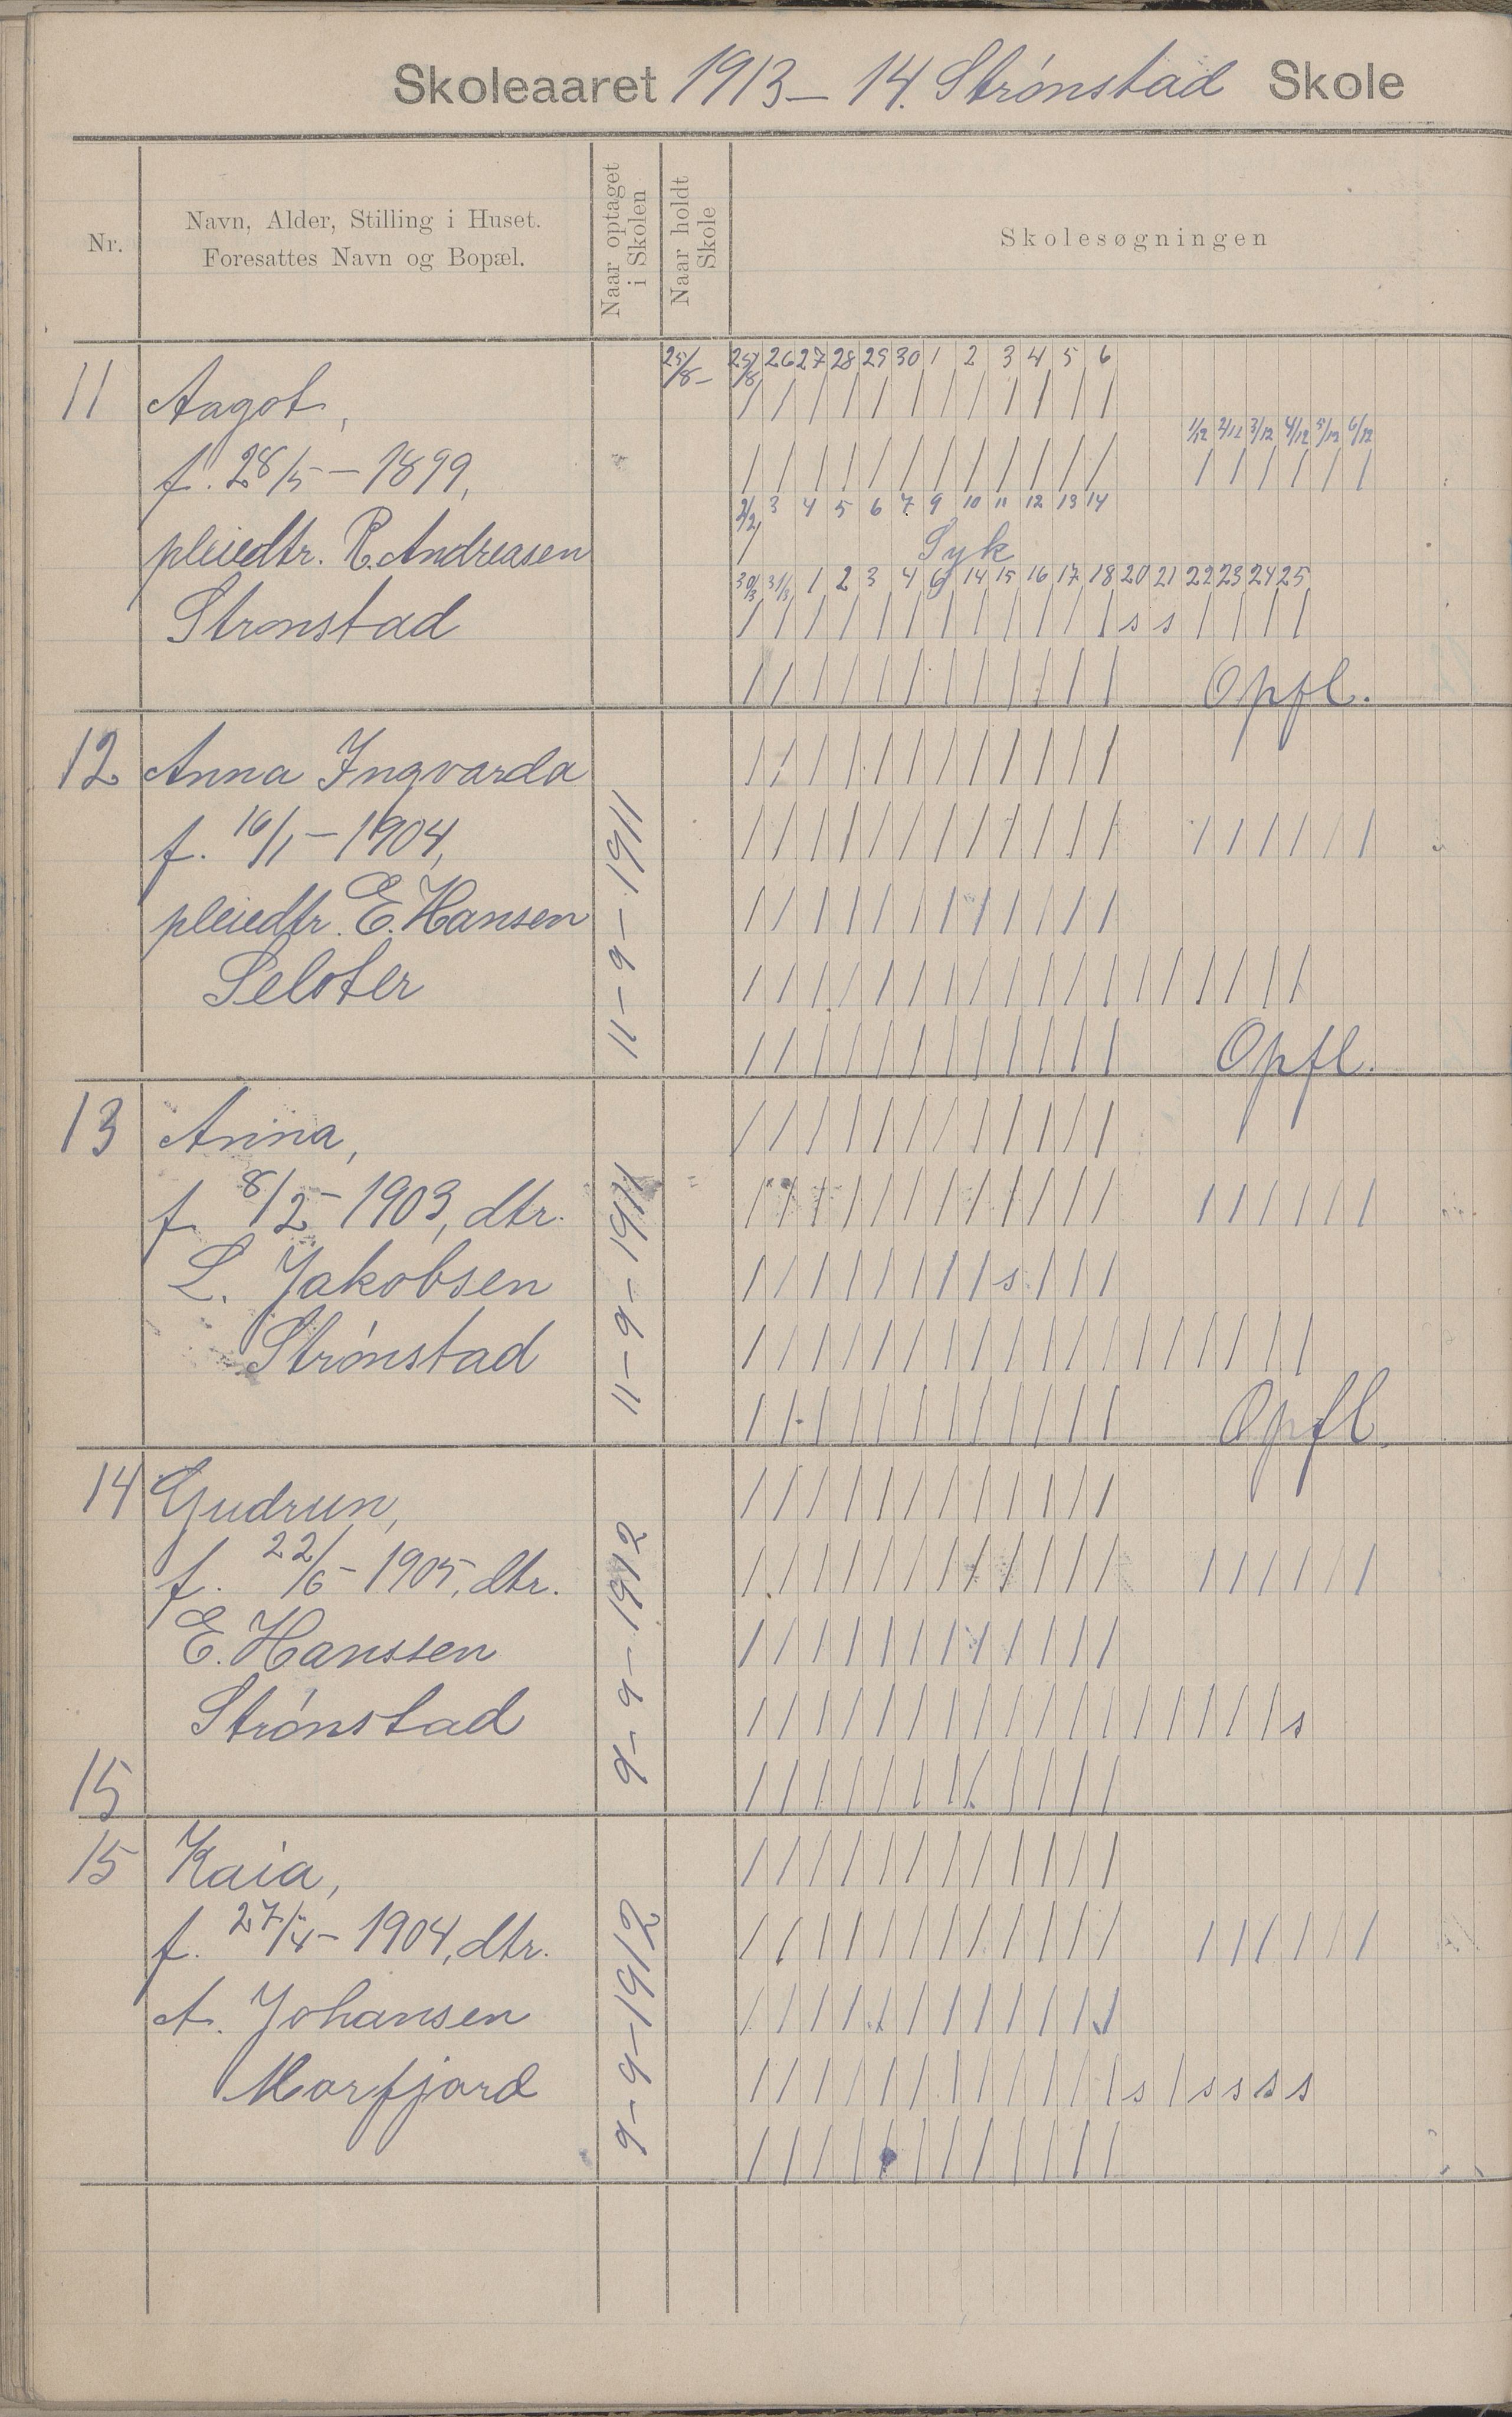 Skoleaaret 1913-14. Strønstad Skole
Nr.
Navn, Alder, Stilling i Huset.
Foresattes Navn og Bopæl.
Naar optaget
i Skolen
Naar holdt
Skole
Skolesøgningen
25/8- 25/8 26 27 28 29 30 1 2 3 4 5 6
11 Aagot,
/ / / / / / / / / / / /
1/12 2/12 3/12 4/12 5/12 6/12
f. 28/5-1899,
/ / / / / / / / / / / / / / / / / /
2/2 3 4 5 6 7 9 10 11 12 13 14
pleiedtr. R. Andreasen / Syk
30/3 31/3 1 2 3 4 6 14 15 16 17 18 20 21 22 23 24 25
Strønstad / / / / / / / / / / / / s s / / / /
/ / / / / / / / / / / / Opfl.
12 Anna Ingvarda / / / / / / / / / / / /
f. 16/1-1904, / / / / / / / / / / / / / / / / / /
pleiedtr. E. Hansen / / / / / / / / / / / /
11-9-1911
/ / / / / / / / / / / / / / / / / /
/ / / / / / / / / / / / Opfl.
13 Anna, / / / / / / / / / / / /
f. 8/2-1903, dtr. / / / / / / / / / / / / / / / / / /
L. Jakobsen / / / / / / / / s / / /
Strønstad / / / / / / / / / / / / / / / / / /
11-9-1911
/ / / / / / / / / / / / Opfl.
14 Gudrun, / / / / / / / / / / / /
f. 22/6-1905, dtr. / / / / / / / / / / / / / / / / / /
E. Hanssen / / / / / / / / / / / /
Strønstad / / / / / / / / / / / / / / / / / s
9-9-1912
15 / / / / / / / / / / / /
15 Kaia, / / / / / / / / / / / /
f. 27/4-1904, dtr. / / / / / / / / / / / / / / / / / /
A. Johansen / / / / / / / / / / / /
Morfjord / / / / / / / / / / / / s / s s s s
9-9-1912
/ / / / / / / / / / / /